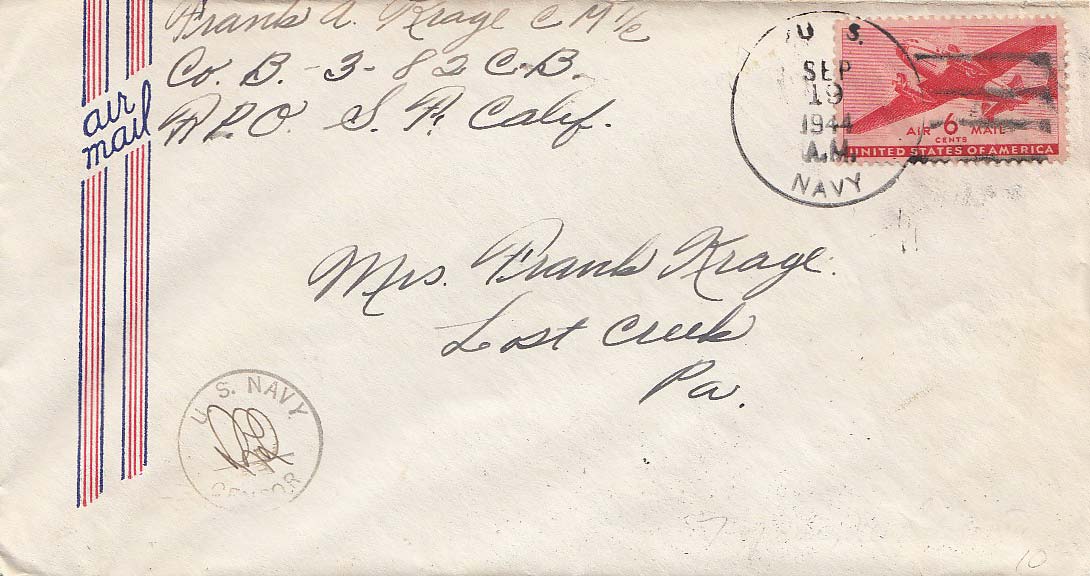 Frank A. Krage C M 1/c
Co. B. - 3 - 82 C.B.
F.P.O. S. F. Calif.
air
mail
U. S.
SEP
19
1944
A.M.
NAVY
AIR 6 MAIL
CENTS
UNITED STATES OF AMERICA
Mrs. Frank Krage.
Lost Creek
Pa.
U. S. NAVY
CENSOR
10